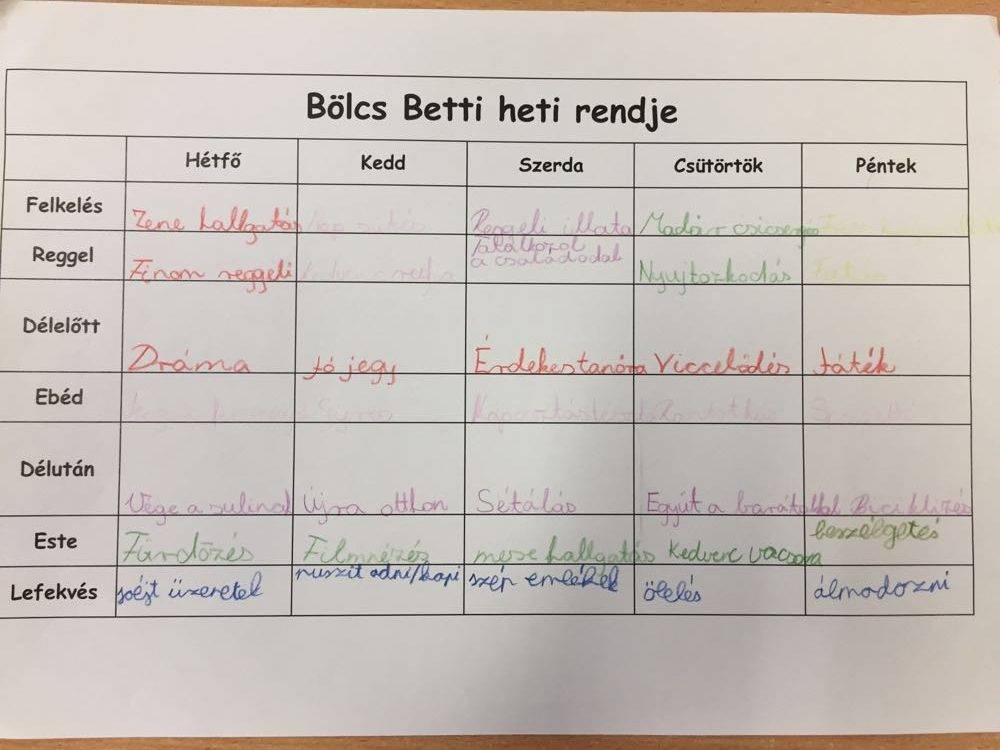 Bölcs Betti heti rendje
Hétfő Kedd Szerda Csütörtök Péntek
Felkelés Zene hallgatás Reggeli illata Madár csicsergés
Reggel Finom reggeli találkozol
a családodal Nyujtozkodás
Délelőtt Dráma Jó jegy Érdekes tanóra Viccelődés Játék
Ebéd
Délután Vége a sulinak Újra otthon Sétálás Együt a barátokkal Biciklizés
Este Fürdőzés Filmnézés mese hallgatás kedvenc vacsora beszélgetés
Lefekvés üzenetek puszit adni/kapi szép emlékek ölelés álmodozni